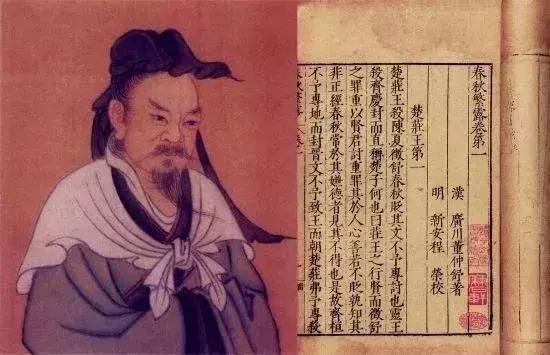 春秋繁露卷第一
漢 廣川董仲舒著
明 新安程 榮校
楚莊王第一
楚莊王殺陳夏徵舒春秋貶其文不予專討也靈王
殺齊慶封而直稱楚子何也曰莊王之行賢而徵舒
之罪重以賢君討重罪其於人心善若不貶孰知其
非正經春秋常於其嫌得者見其不得也是故齊桓
不予專地而封晉文不予致王而朝楚莊弗予專殺